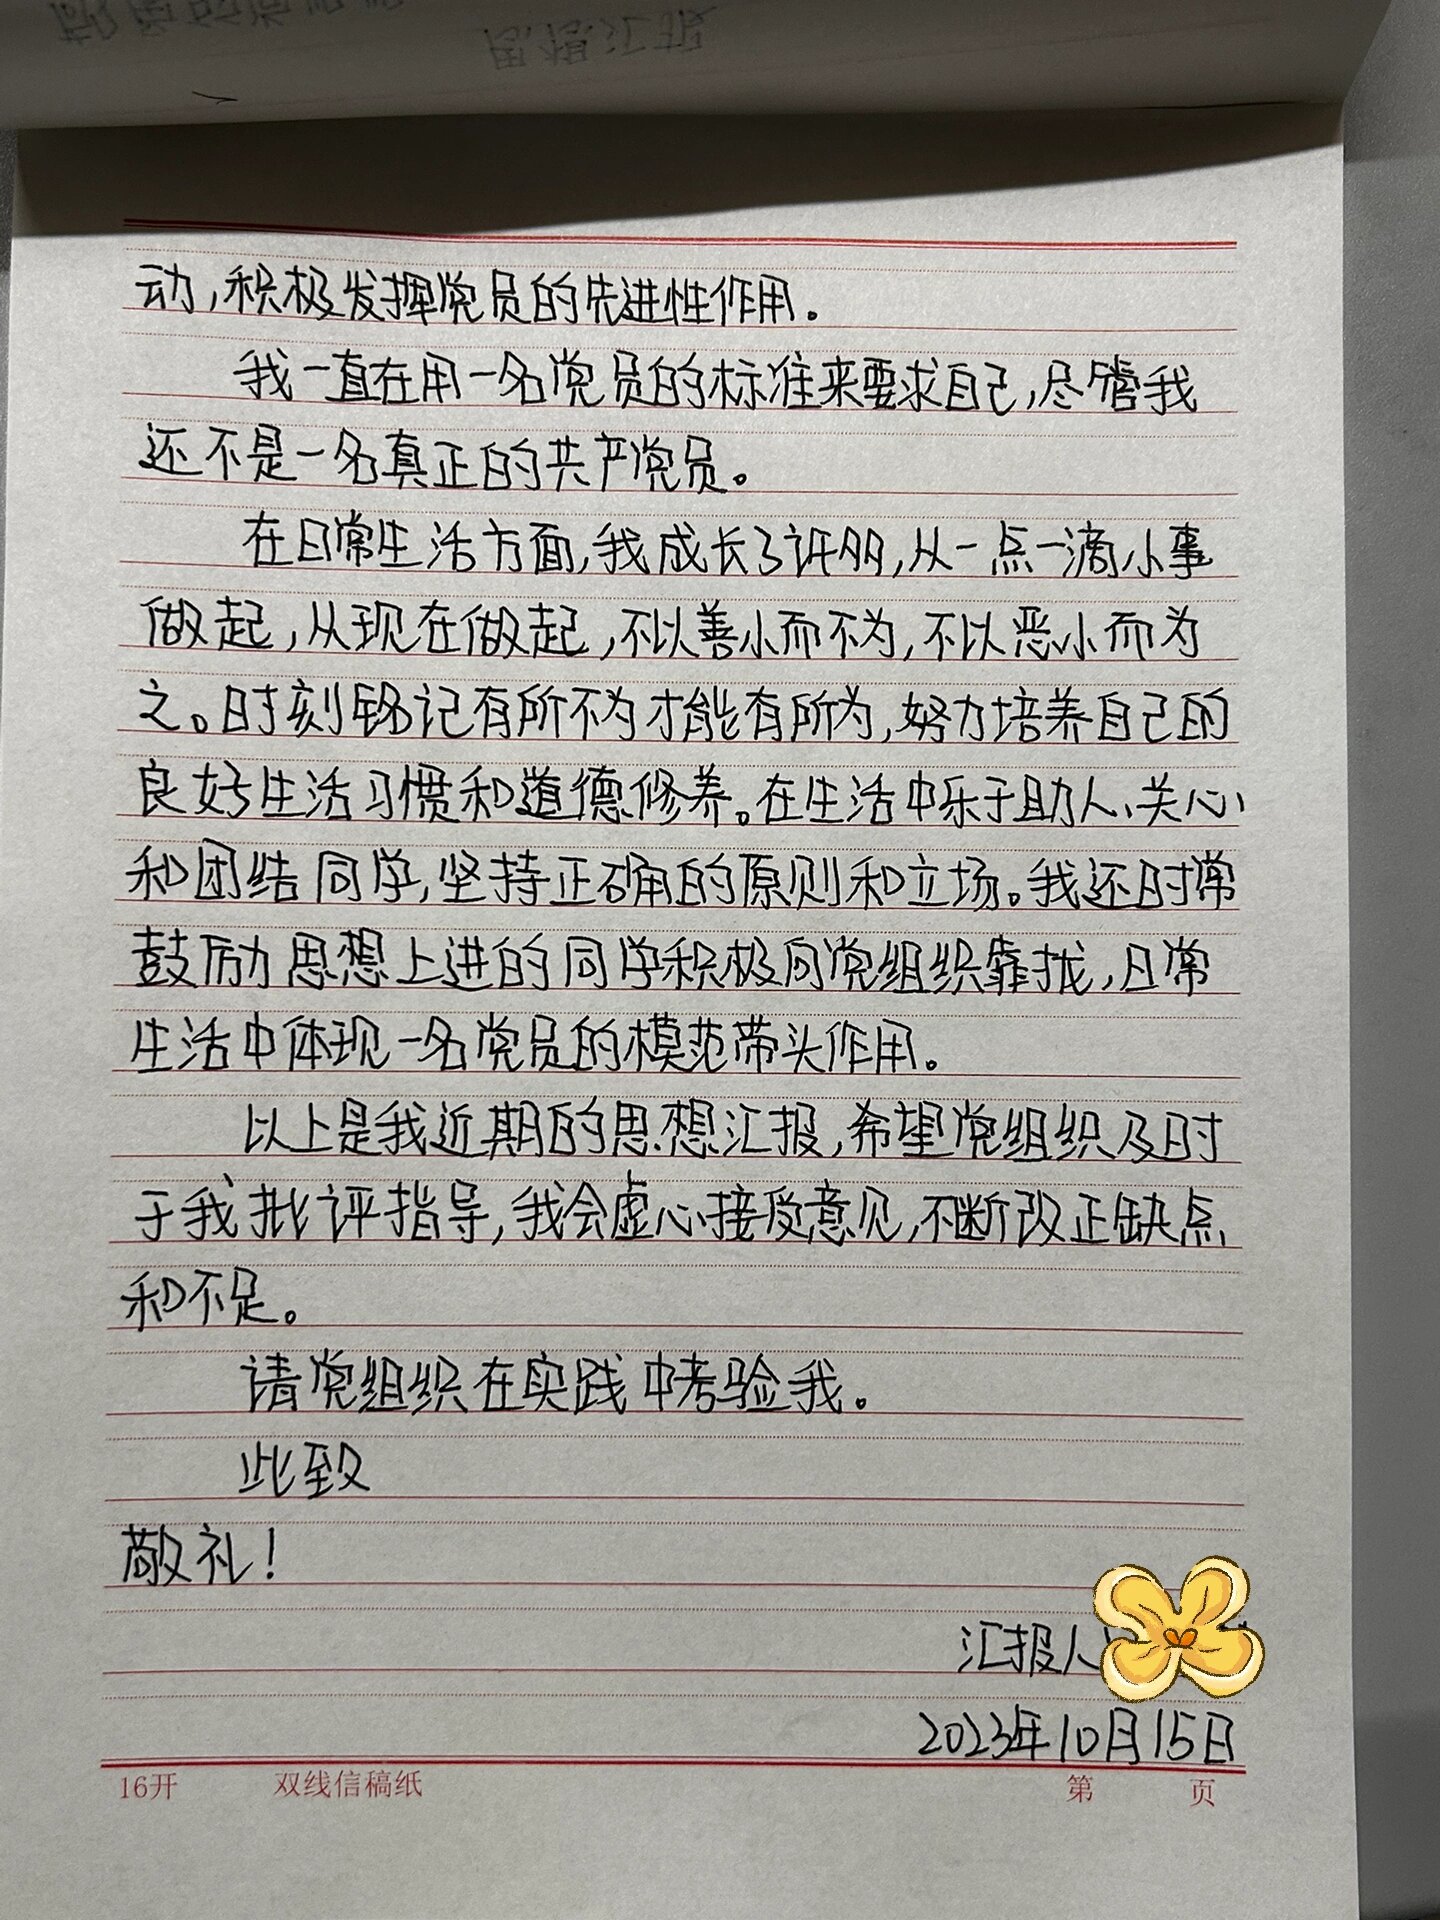 思想汇报
动,积极发挥党员的先进性作用。
我一直在用一名党员的标准来要求自己,尽管我
还不是一名真正的共产党员。
在日常生活方面,我成长了许多,从一点一滴小事
做起,从现在做起,不以善小而不为,不以恶小而为
之。时刻铭记有所不为才能有所为,努力培养自己的
良好生活习惯和道德修养。在生活中乐于助人、关心
和团结同学,坚持正确的原则和立场。我还时常
鼓励思想上进的同学积极向党组织靠拢,日常
生活中体现一名党员的模范带头作用。
以上是我近期的思想汇报,希望党组织及时
于我批评指导,我会虚心接受意见,不断改正缺点
和不足。
请党组织在实践中考验我。
此致
敬礼!
汇报人
2023年10月15日
16开 双线信稿纸 第 页